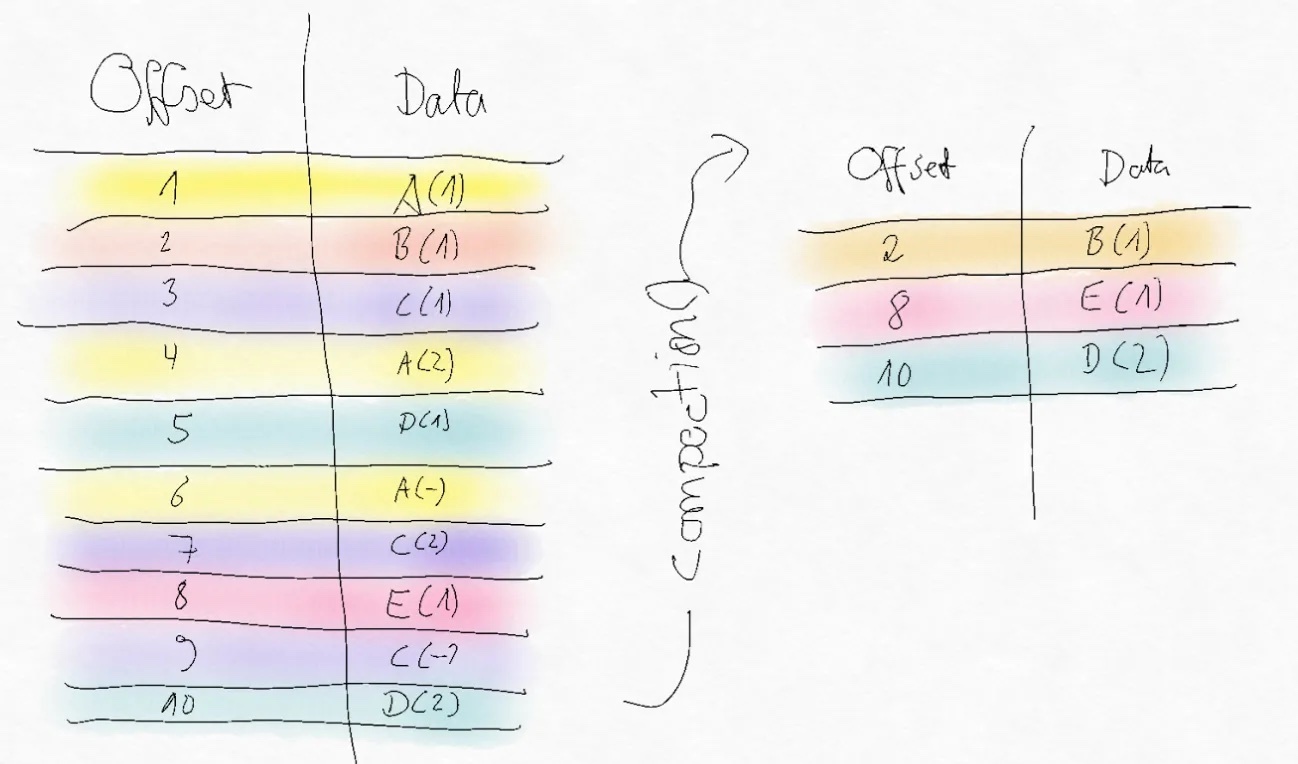 Offset Data
1 A(1)
2 B(1)
3 C(1)
4 A(2)
5 D(1)
6 A(-)
7 C(2)
8 E(1)
9 C(-)
10 D(2)
compaction
Offset Data
2 B(1)
8 E(1)
10 D(2)